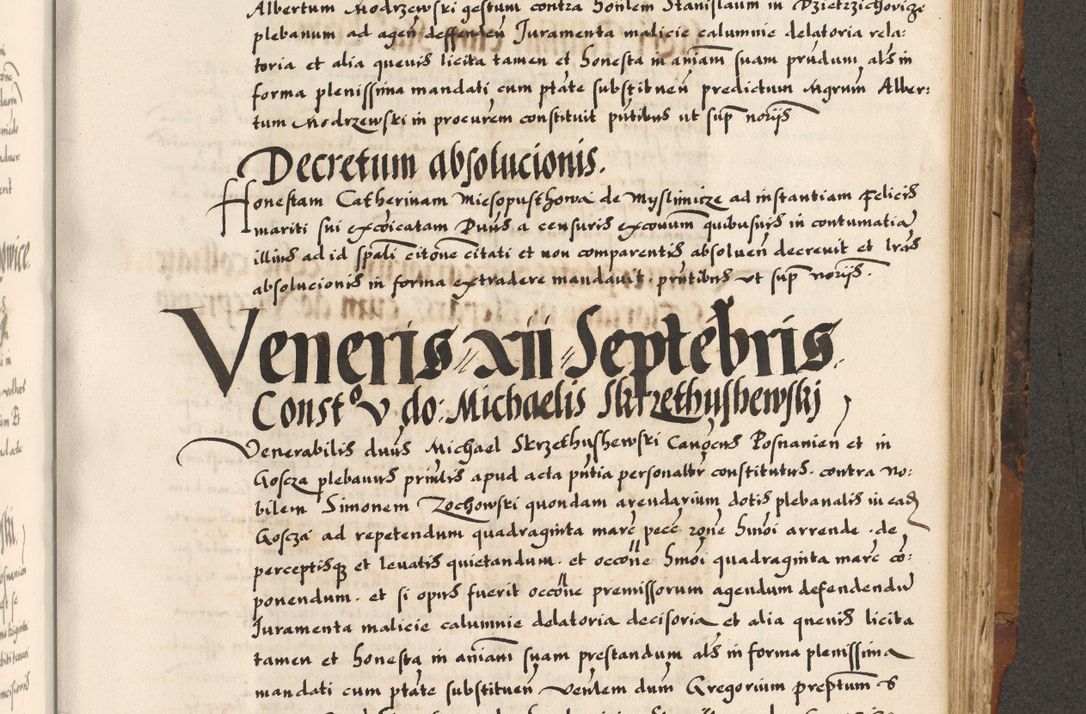 Albertum Modrzewski gestum contra honlem Stanislaum in Dzietrzichovicze
plebanum ad agen deffenden Juramenta malicie calumnie delatoria rela:
toria et alia quevis licita tamen et honesta in aniam suam prndum als in
forma plenissima mandati cum ptate substituen predictum Mgrum Alber:
tum Modrzewski in procurem constituit pntibus ut sup noriis
Decretum absolucionis.
Honestam Catherinam Miesopusthowa de Myslimicze ad instantiam Felicis
mariti sui excoicatam Dnus a censuris excoium quibusvis in contumatia
illius ad id spali citone citati et non comparentis absolven decrevit et lras
absolucionis in forma extradere mandavit. prntibus ut sup noriis.
Veneris xii Septebris.
Const⁰ v, do: Michaelis Skrzethushewskj
Venerabilis dnus Michael Skrzethushewski Canocus Posnanien et in
Goscza plebanus prinlis apud acta pntia personaltr constitutus. contra no:
bilem Simonem Zochowski quondam arendarium dotis plebanalis in ead
Goscza ad repetendum quadraginta marc pecc rone hmoi arrende. de
perceptisq et levatis quietandum. et occone hmoi quadraginta marc co:
ponendum. et si opus fuerit occone premissorum agendum defendendu
Juramenta malicie calumnie delatoria decisoria et alia quevis licita
tamen et honesta in aniam suam prestandum als in forma plenissima
mandati cum ptate substituen venlem dum Gregorium preptum